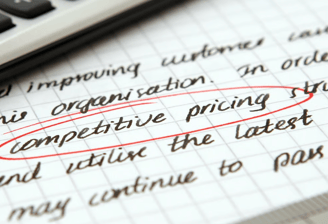 improving customer
organisation. In order
competitive pricing
utilise the latest
may continue to pass